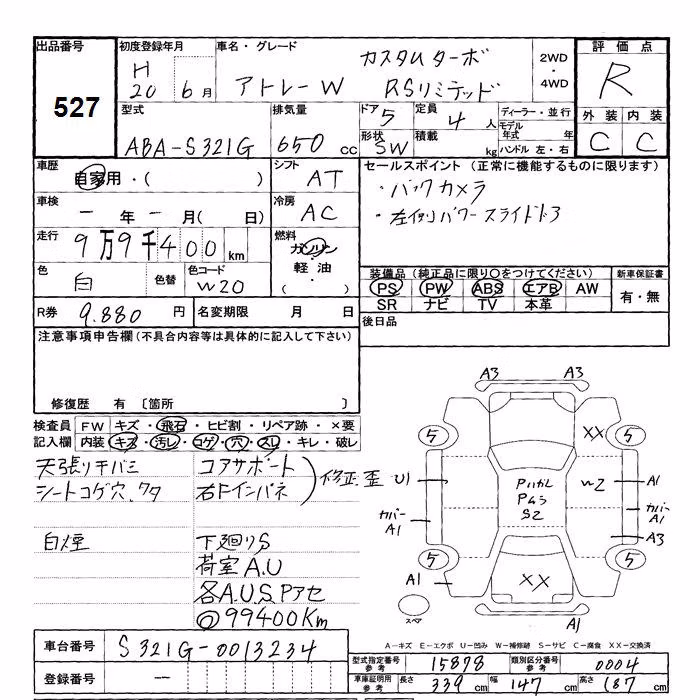 出品番号
527
初度登録年月
H
20 6月
車名・グレード
カスタムターボ
アトレーW RSリミテッド
2WD
・
4WD
評価点
R
型式
ABA-S321G
排気量
650 cc
ドア 5
定員 4 人
形状 SW
積載 kg
ディーラー・並行
モデル年式 年
ハンドル 左・右
外装 内装
C C
車歴
自家用・( )
シフト
AT
セールスポイント (正常に機能するものに限ります)
・バックカメラ
・左側パワースライドドア
車検
ー 年 ー 月( 日)
冷房
AC
走行
9万9千400km
燃料
ガソリン
・
軽油
・
( )
色
白
色替
色コード
W20
装備品 (純正品に限り○をつけてください)
PS PW ABS エアB AW
SR ナビ TV 本革
新車保証書
有・無
R券 9.880 円
名変期限 月 日
後日品
注意事項申告欄(不具合内容等は具体的に記入して下さい)
修復歴 有 〔箇所 〕
検査員記入欄
FW キズ・飛石・ヒビ割・リペア跡・×要
内装 キズ・汚レ・コゲ・穴・スレ・キレ・破レ
天張り干バミ
シートコゲ穴、ワタ
コアサポート
右Fインパネ
修正歪
白煙
下廻りS
荷室A.U
各A.U.S.Pアセ
@99400Km
A3 A3
5 5
XX
U1
Pハガレ
Pムラ
S2
W2
A1
カバー
A1
カバー
A1
A3
5 5
A1
XX
スペア
A1
A-キズ E-エクボ U-凹み W-補修跡 S-サビ C-腐食 XX-交換済
車台番号
S321G-0013234
登録番号
ー
型式指定番号
参考
15878
類別区分番号
参考
0004
車庫証明用
参考
長さ 339cm 幅 147cm 高さ 187cm